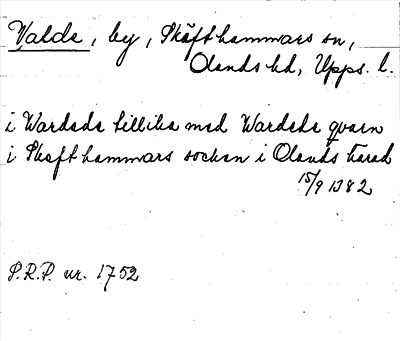 Valda, by, Skäfthammars sn,
Olands hd, Upps. l.
i Wardada tillika med Wardada qvarn
i Skafthammars sockan i Olands harad
15/9 1382
S.R.P. nr. 1752